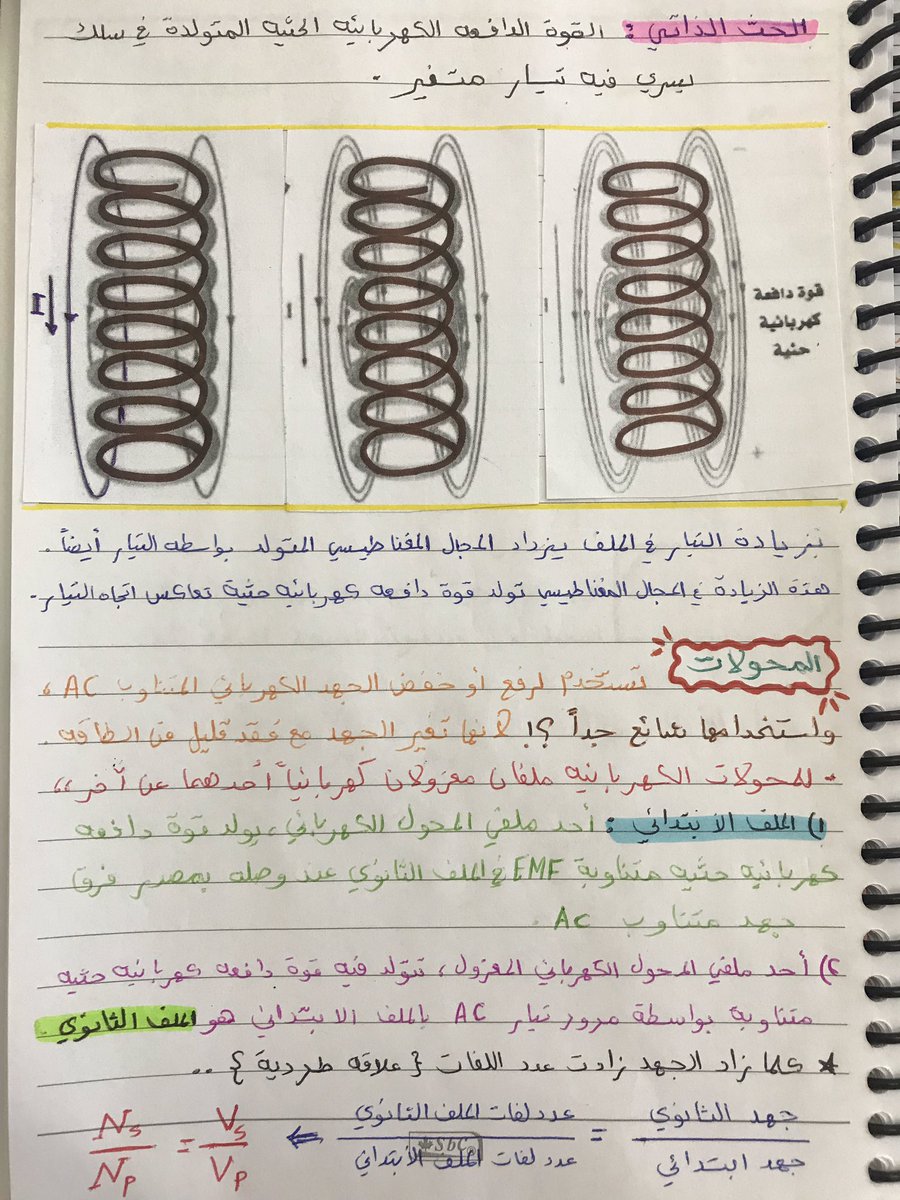 الحث الذاتي : القوة الدافعه الكهربائيه الحثيه المتولدة في سلك
يسري فيه تيار متغير .
I
قوة دافعة
كهربائية
حثية
بزيادة التيار في الملف يزداد المجال المغناطيسي المتولد بواسطه التيار أيضاً .
هذة الزيادة في المجال المغناطيسي تولد قوة دافعه كهربائيه حثية تعاكس اتجاه التيار .
المحولات تستخدم لرفع أو خفض الجهد الكهربائي المتناوب AC ،
واستخدامها شائع جداً ؟! لأنها تغير الجهد مع فقد قليل من الطاقه .
- للمحولات الكهربائيه ملفان معزولان كهربائياً أحدهما عن آخر ،،
١) الملف الأبتدائي : أحد ملفي المحول الكهربائي ، يولد قوة دافعه
كهربائيه حثيه متناوبة EMF في الملف الثانوي عند وصله بمصدر فرق
جهد متناوب AC .
٢) أحد ملفي المحول الكهربائي المعزول ، تتولد فيه قوة دافعه كهربائيه حثيه
متناوبة بواسطة مرور تيار AC بالملف الابتدائي هو الملف الثانوي .
* كلما زاد الجهد زادت عدد اللفات { علاقه طردية } ..
جهد الثانوي / جهد ابتدائي = عدد لفات الملف الثانوي / عدد لفات الملف الأبتدائي ⇐ Vs / Vp = Ns / Np